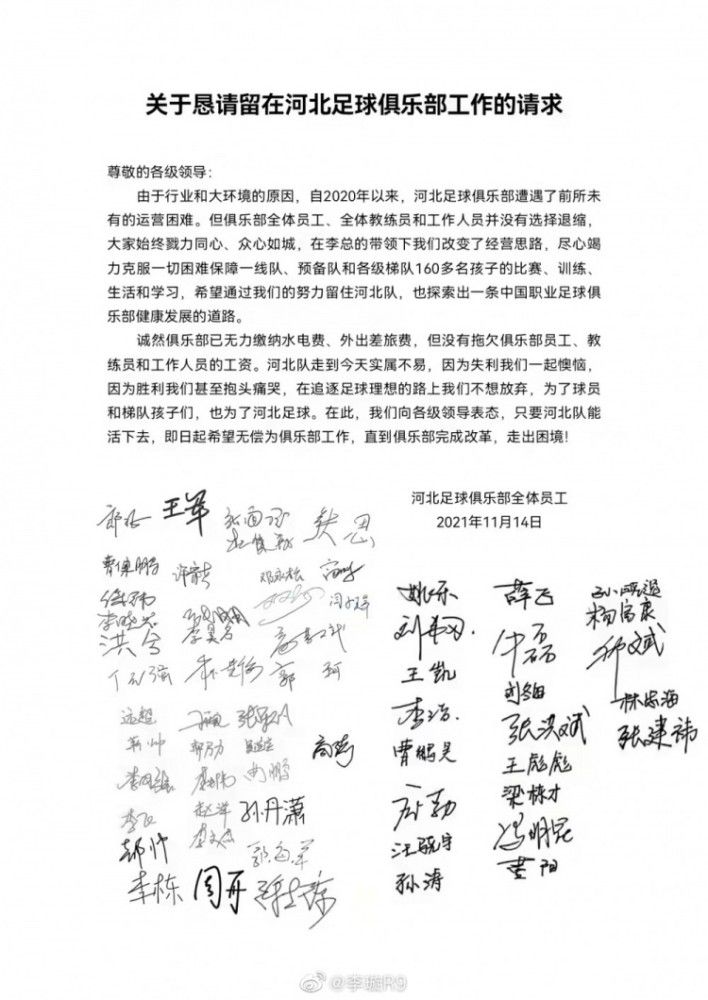 关于恳请留在河北足球俱乐部工作的请求
尊敬的各级领导：
由于行业和大环境的原因，自2020年以来，河北足球俱乐部遭遇了前所未
有的运营困难。但俱乐部全体员工、全体教练员和工作人员并没有选择退缩，
大家始终戮力同心、众心如城，在李总的带领下我们改变了经营思路，尽心竭
力克服一切困难保障一线队、预备队和各级梯队160多名孩子的比赛、训练、
生活和学习，希望通过我们的努力留住河北队，也探索出一条中国职业足球俱
乐部健康发展的道路。
诚然俱乐部已无力缴纳水电费、外出差旅费，但没有拖欠俱乐部员工、教
练员和工作人员的工资。河北队走到今天实属不易，因为失利我们一起懊恼，
因为胜利我们甚至抱头痛哭，在追逐足球理想的路上我们不想放弃，为了球员
和梯队孩子们，也为了河北足球。在此，我们向各级领导表态，只要河北队能
活下去，即日起希望无偿为俱乐部工作，直到俱乐部完成改革，走出困境！
河北足球俱乐部全体员工
2021年11月14日
王军
曹保鹏
洪兮
郭珂
孙丹潇
郭海军
李栋
周开
姚乐
王凯
李浩
曹鹏昊
孙涛
薛飞
牛磊
张洪斌
王彪彪
梁栋才
冯明昆
杨富康
林忠海
张建祎
@李璇R9